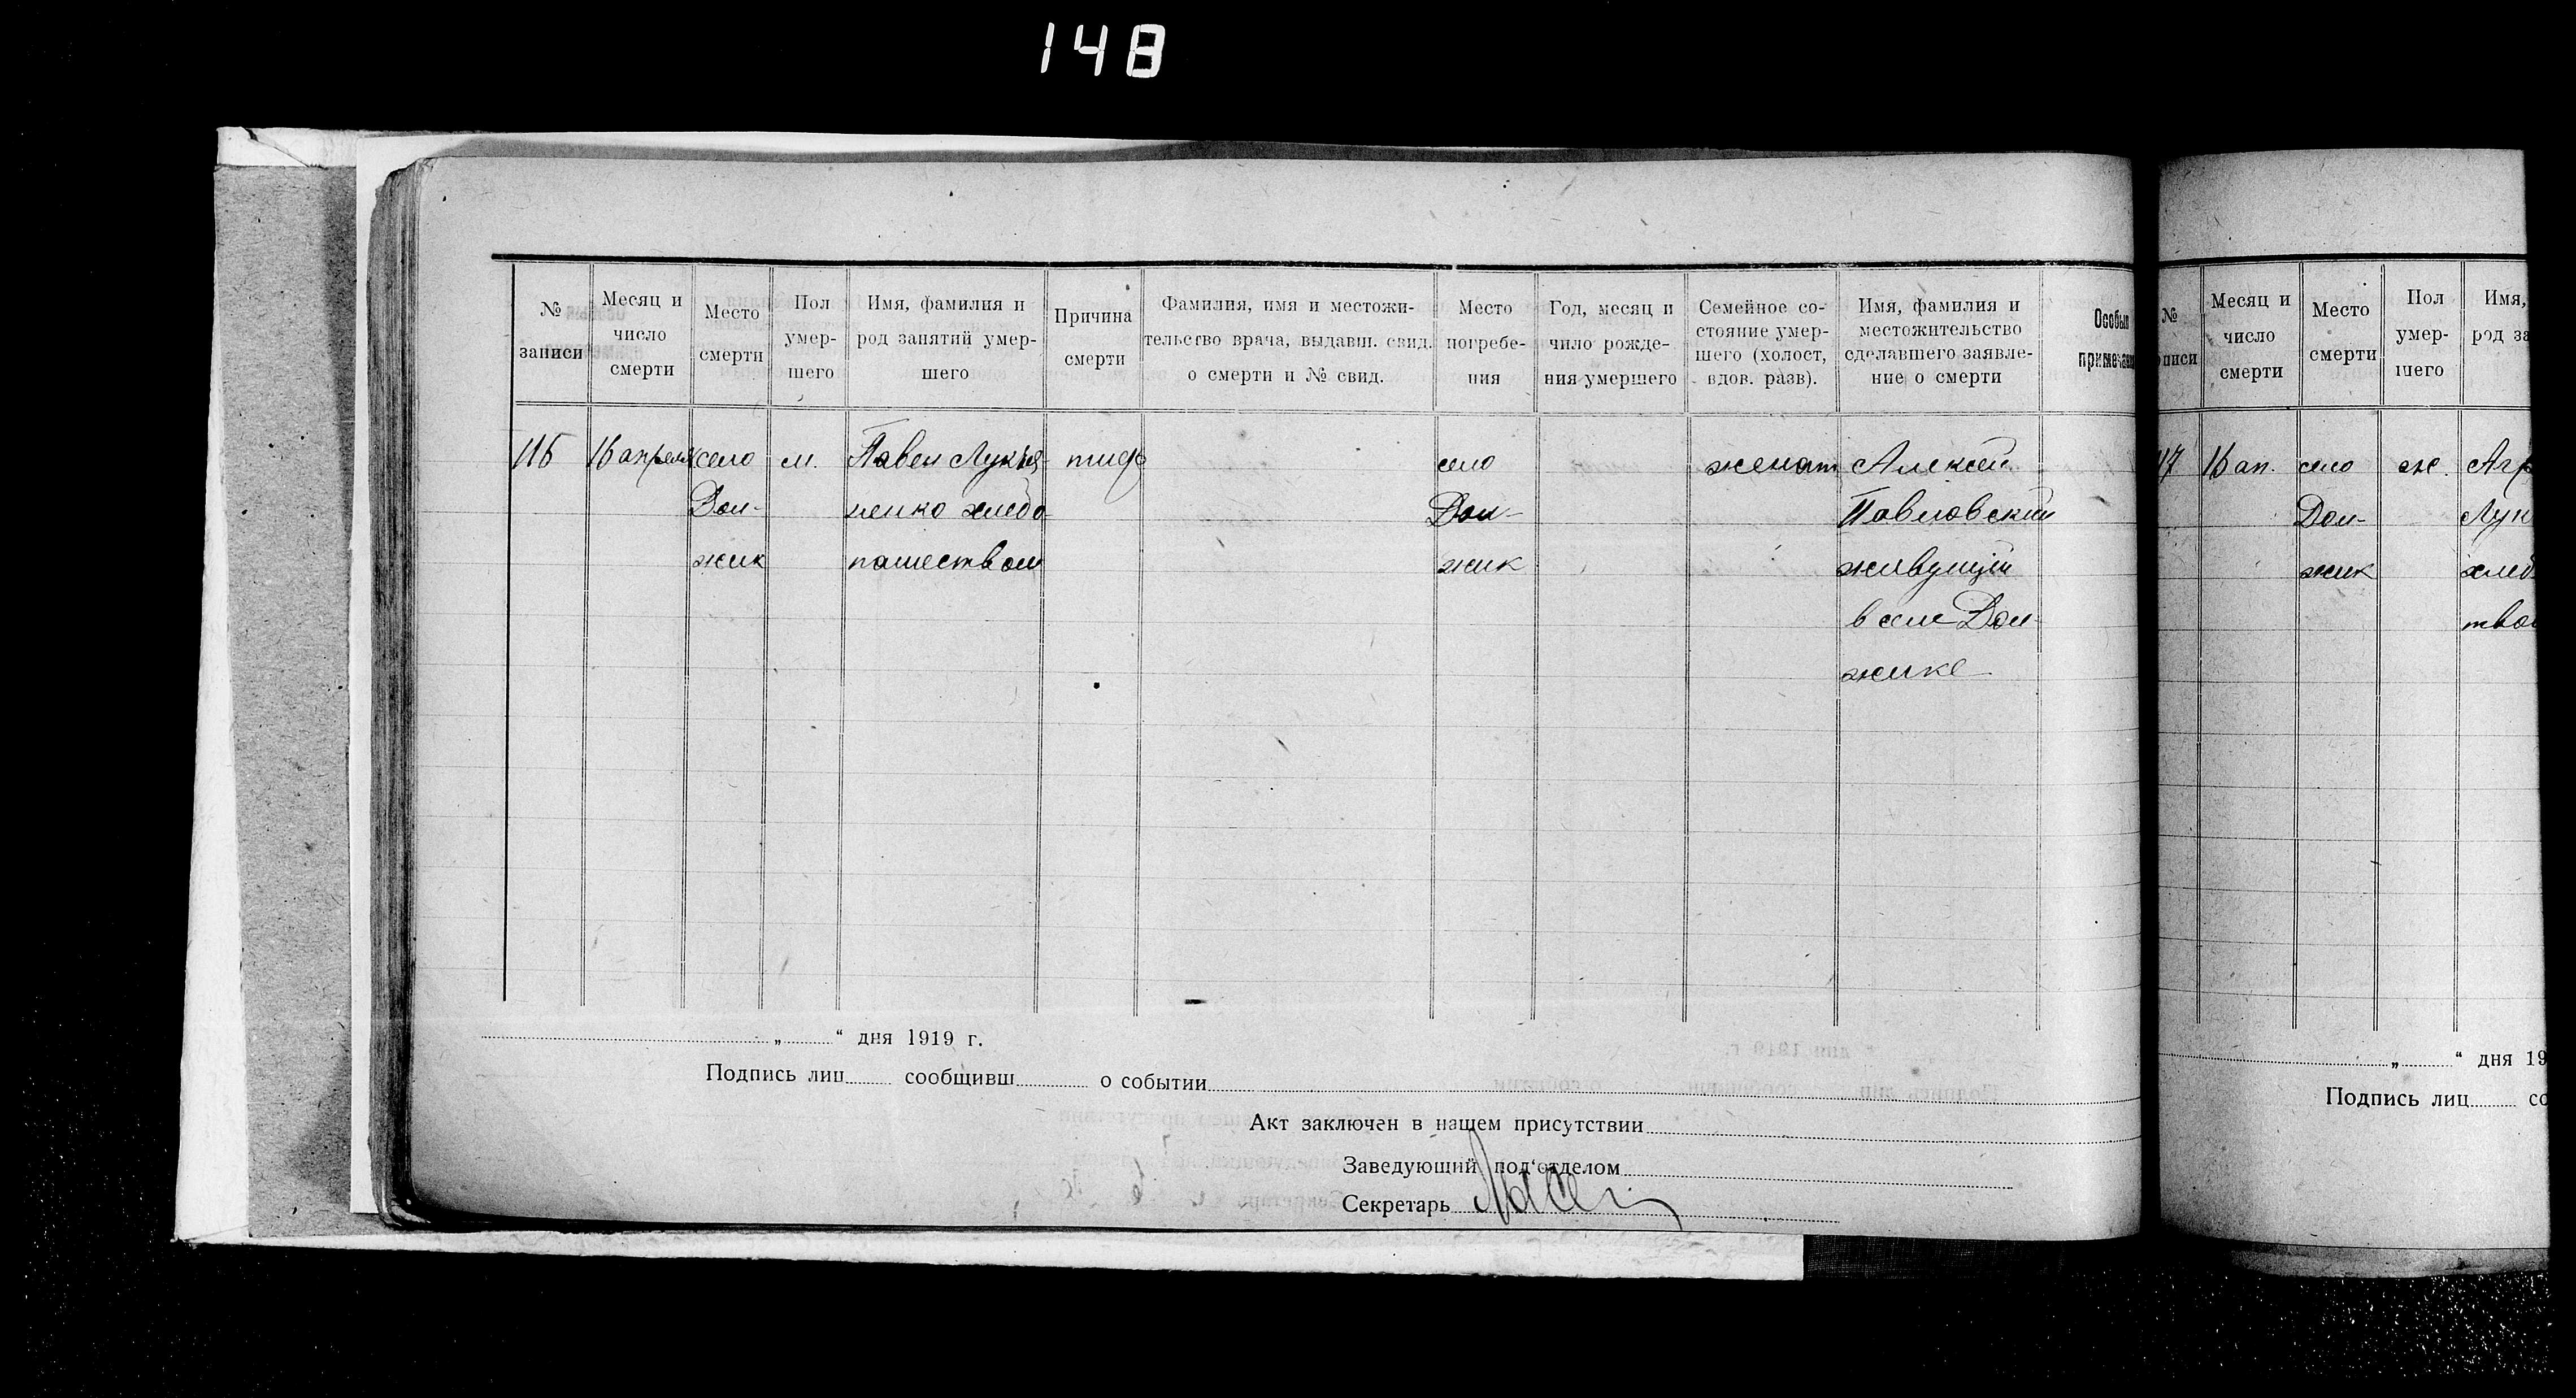 148
№ записи
Месяц и число смерти
Место смерти
Пол умер-шего
Имя, фамилия и род занятий умер-шего
Причина смерти
Фамилия, имя и местожи-тельство врача, выдавш. свид. о смерти и № свид.
Место погребе-ния
Год, месяц и чило рожде-ния умершего
Семейное со-стояние умер-шего (холост, вдов. разв).
Имя, фамилия и местожительство сделавшего заявле-ние о смерти
Особыя примечан
116
16 апреля
село
Дол-
жик
м.
Павел Лукья-
ненко хлебо
пашеством
тиф
село
Дол-
жик
женат
Алексей
Павловский
живущий
в селе Дол-
жике
„ “ дня 1919 г.
Подпись лиц сообщивш о событии
Акт заключен в нашем присутствии
Заведующий под'отделом
Секретарь
№ писи
Месяц и число смерти
Место смерти
Пол умер-шего
Имя,
род за
117
16 ап.
село
Дол-
жик
ж.
Агр
Лук
хлеб
тво
„ “ дня 19
Подпись лиц со